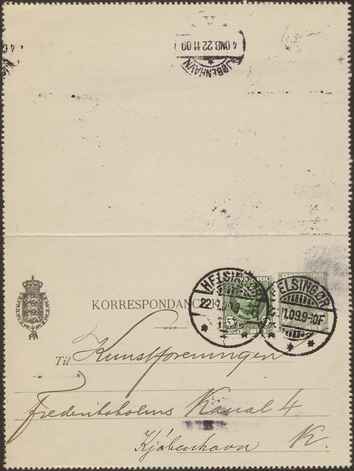 4.OMB 22.11.09
KJØBENHAVN
KORRESPONDANCE
HELSINGØR
HELSINGØR
Til Kunstforeningen
Frederiksholms Kanal 4
Kjøbenhavn K.